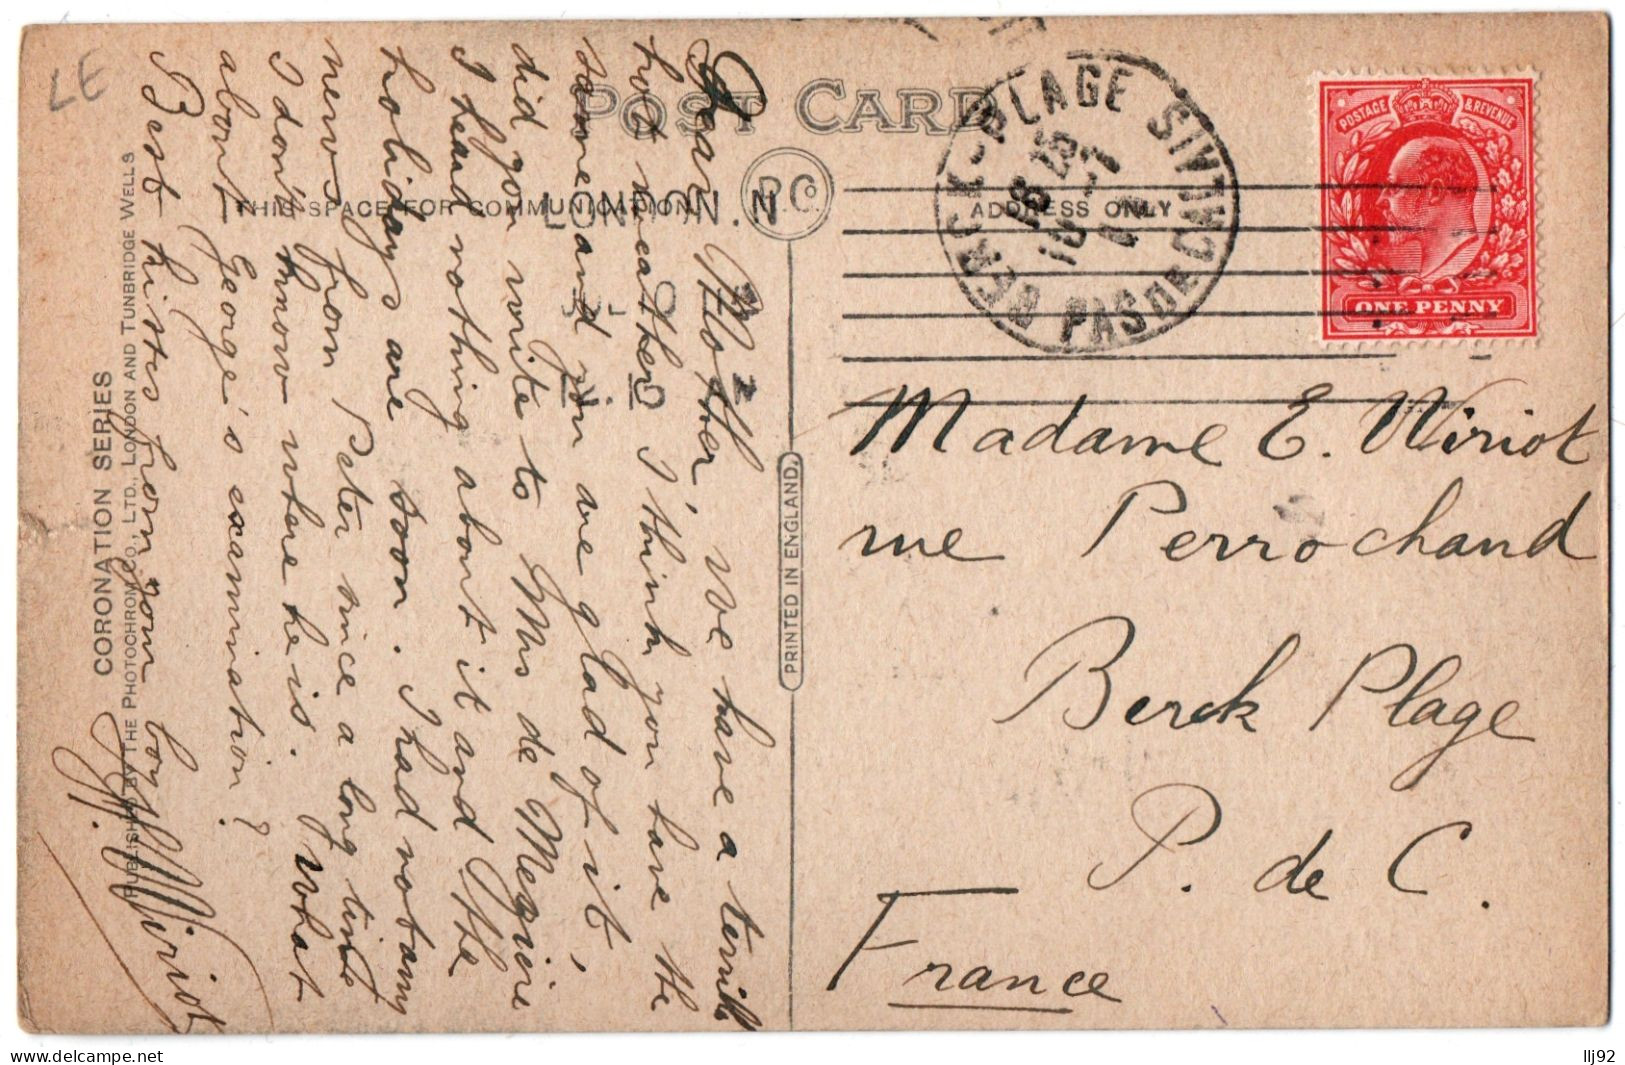 LE
POST CARD
THIS SPACE FOR COMMUNICATION
P.Co.
ADDRESS ONLY
LONDON. N
BERCK-PLAGE
PAS DE CALAIS
POSTAGE & REVENUE
ONE PENNY
Dear Mother, We have a terrible
hot weather I think you have the
same and you are glad of it,
did you write to Mrs de
I heard nothing about it and the
holidays are soon. I had not any
news from Peter since a long time
I don't know where he is. What
about George's examination?
Best kisses from your boy
Wiriot
Madame E. Wiriot
rue Perrochaud
Berck Plage
P. de C.
France
PRINTED IN ENGLAND.
CORONATION SERIES
PUBLISHED BY THE PHOTOCHROM CO., LTD., LONDON AND TUNBRIDGE WELLS
llj92